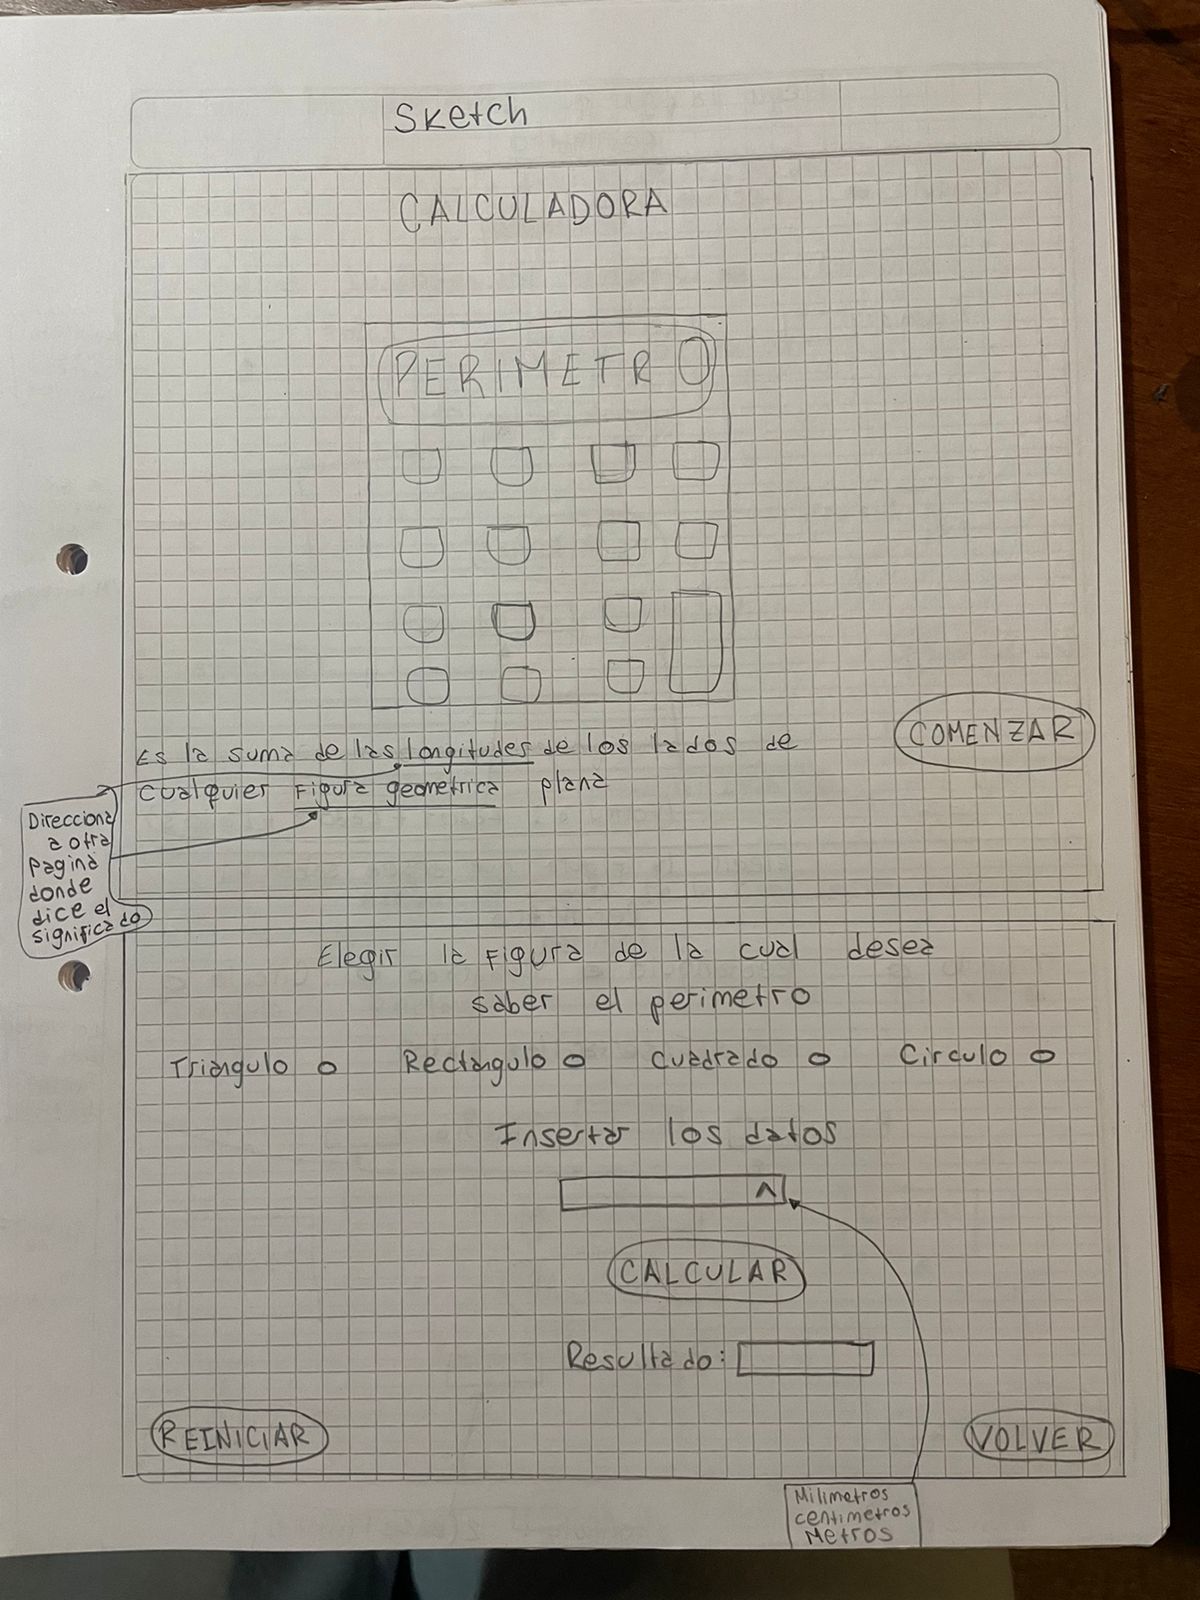 Sketch
CALCULADORA
PERIMETRO
Es la suma de las longitudes de los lados de
cualquier Figura geometrica plana
COMENZAR
Direcciona
a otra
Pagina
donde
dice el
significado
Elegir la Figura de la cual desea
saber el perimetro
Triángulo o Rectángulo o cuadrado o Circulo o
Insertar los datos
CALCULAR
Resultado:
REINICIAR
VOLVER
Milimetros
centimetros
Metros